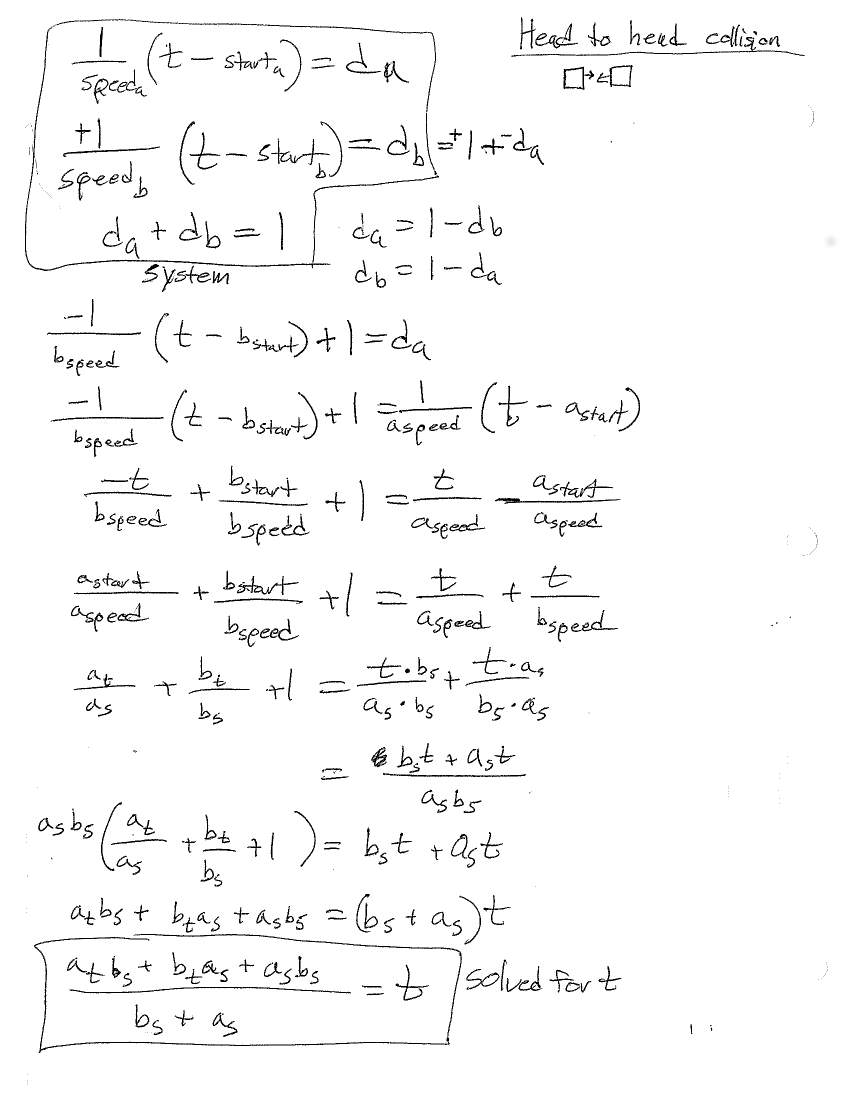 Head to head collision
1/speed_a (t - start_a) = d_a
+1/speed_b (t - start_b) = d_b = +1 + -d_a
d_a + d_b = 1
d_a = 1 - d_b
system
d_b = 1 - d_a
-1/b_speed (t - b_start) + 1 = d_a
-1/b_speed (t - b_start) + 1 = 1/a_speed (t - a_start)
-t/b_speed + b_start/b_speed + 1 = t/a_speed - a_start/a_speed
a_start/a_speed + b_start/b_speed + 1 = t/a_speed + t/b_speed
a_t/a_s + b_t/b_s + 1 = t·b_s/a_s·b_s + t·a_s/b_s·a_s
= b_s t + a_s t/a_s b_s
a_s b_s (a_t/a_s + b_t/b_s + 1) = b_s t + a_s t
a_t b_s + b_t a_s + a_s b_s = (b_s + a_s) t
a_t b_s + b_t a_s + a_s b_s/b_s + a_s = t solved for t